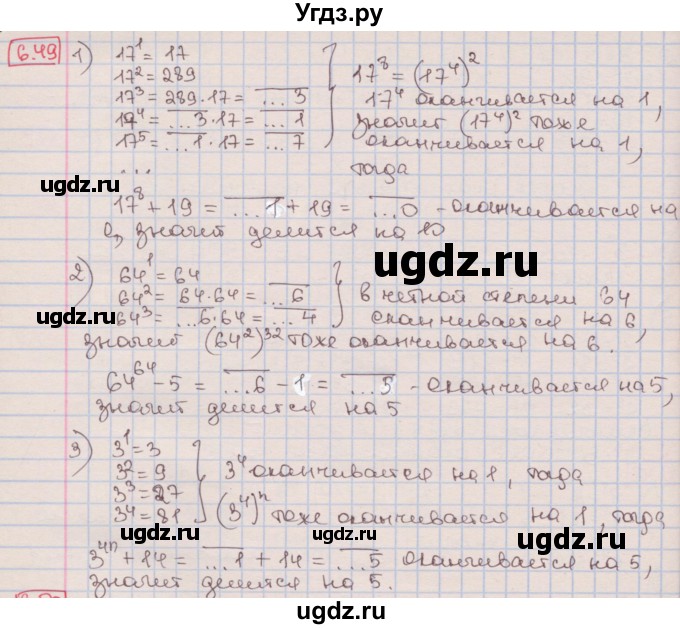 Угдз.ру
6.49 1) 17¹ = 17
17² = 289
17³ = 289·17 = ...3
17⁴ = ...3·17 = ...1
17⁵ = ...1·17 = ...7
...
17⁸ = (17⁴)²
17⁴ оканчивается на 1,
значит (17⁴)² тоже
оканчивается на 1,
тогда
17⁸ + 19 = ...1 + 19 = ...0 - оканчивается на
0, значит делится на 10
2) 64¹ = 64
64² = 64·64 = ...6
64³ = ...6·64 = ...4
в четной степени 64
оканчивается на 6,
значит (64²)³² тоже оканчивается на 6.
64⁶⁴ - 5 = ...6 - 1 = ...5 - оканчивается на 5,
значит делится на 5
3) 3¹ = 3
3² = 9
3³ = 27
3⁴ = 81
3⁴ оканчивается на 1, тогда
(3⁴)ⁿ тоже оканчивается на 1, тогда
3⁴ⁿ + 14 = ...1 + 14 = ...5 оканчивается на 5,
значит делится на 5.
ugdz.ru
ugdz.ru
ugdz.ru
ugdz.ru
ugdz.ru
ugdz.ru
ugdz.ru
ugdz.ru
ugdz.ru
ugdz.ru